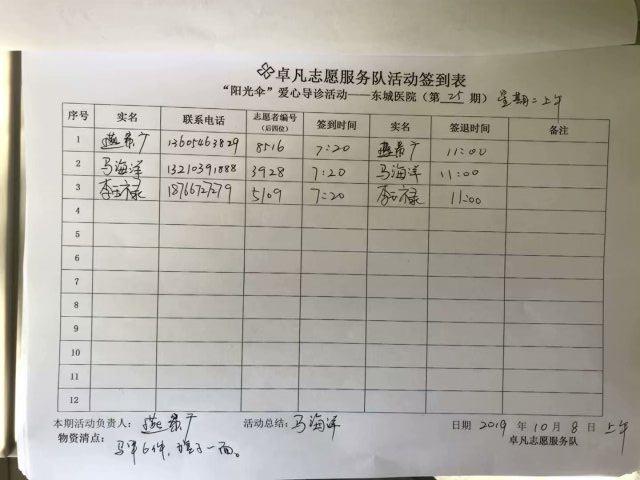 卓凡志愿服务队活动签到表
“阳光伞”爱心导诊活动——东城医院（第 25 期） 星期二上午
序号 实名 联系电话 志愿者编号（后四位） 签到时间 实名 签退时间 备注
1 燕景广 13605463829 8516 7:20 燕景广 11:00
2 马海洋 13210391888 3928 7:20 马海洋 11:00
3 李玉禄 18766727279 5109 7:20 李玉禄 11:00
4
5
6
7
8
9
10
11
12
本期活动负责人： 燕景广 活动总结： 马海洋 日期 2019 年 10 月 8 日 上午
物资清点： 马甲6件， 一面。 卓凡志愿服务队